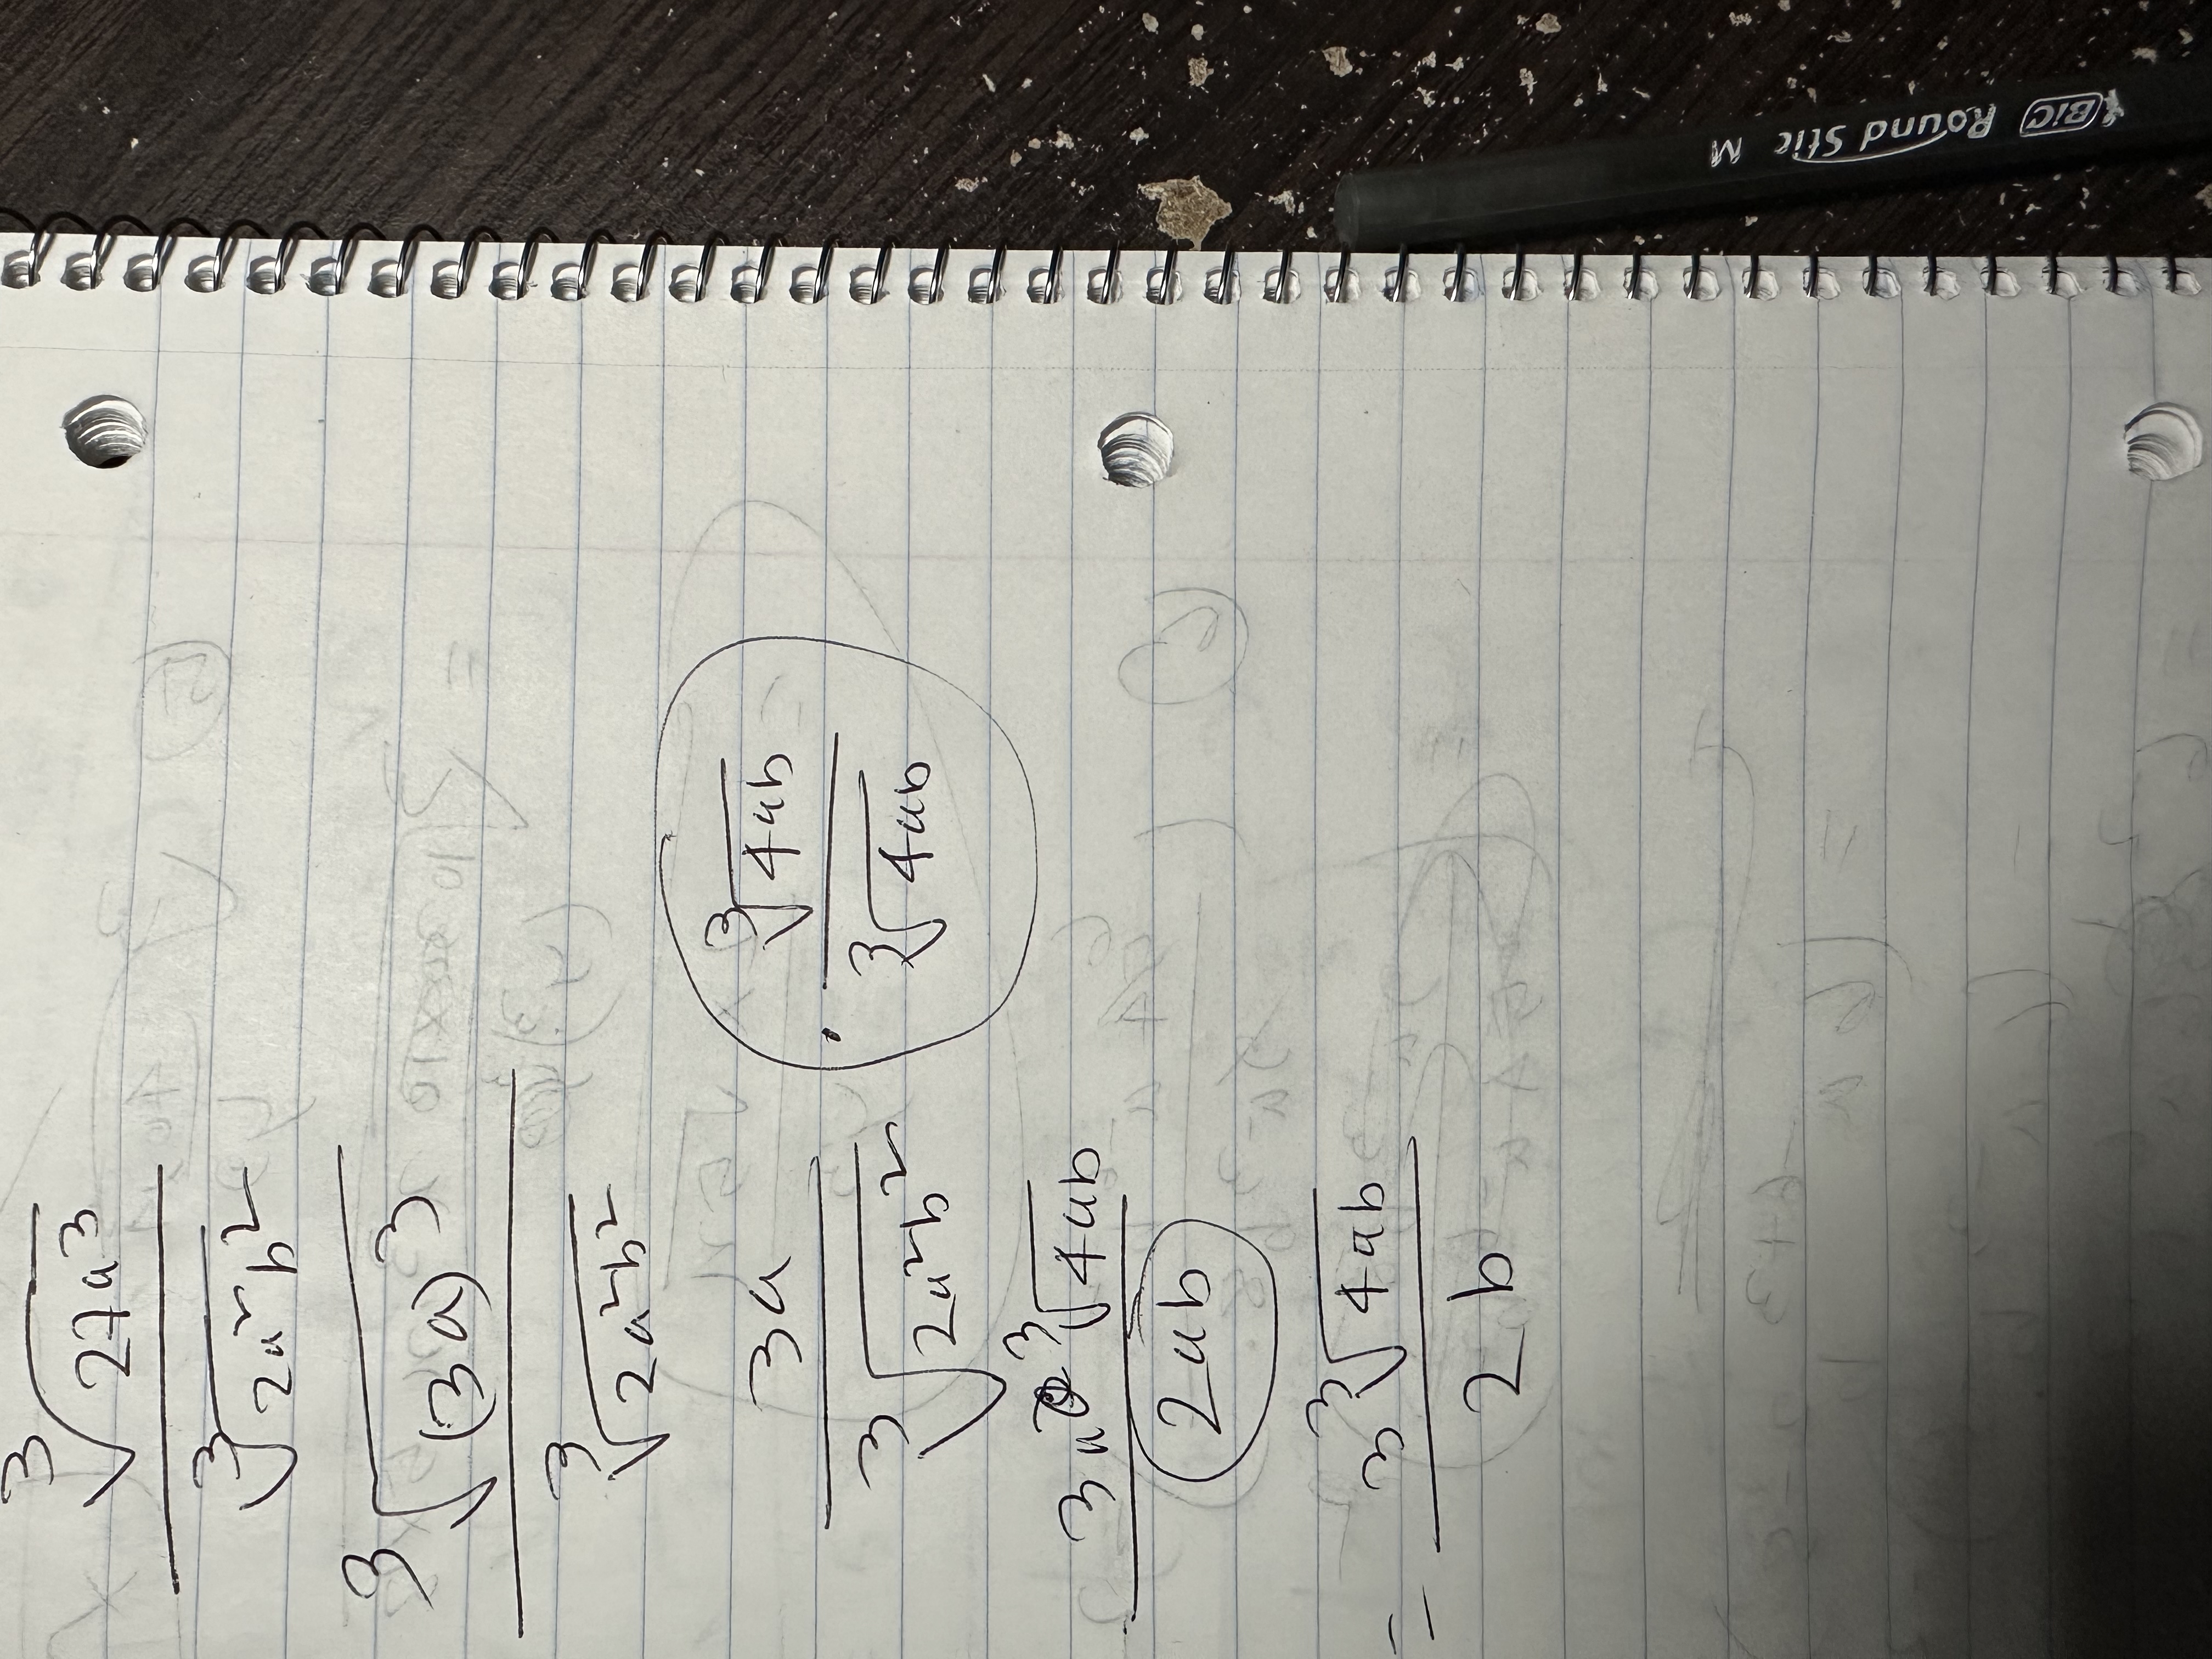 ∛27a³
∛2a²b²
∛(3a)³
∛2a²b²
3a
∛2a²b²
· ∛4ab
∛4ab
3a ∛4ab
2ab
= 3∛4ab
2b
BIC Round Stic M